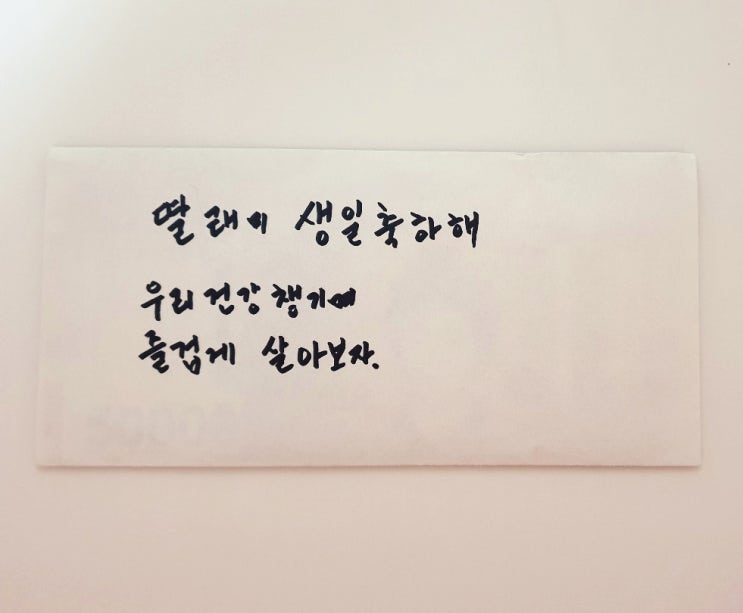 딸래미 생일축하해
우리건강챙기며
즐겁게 살아보자.